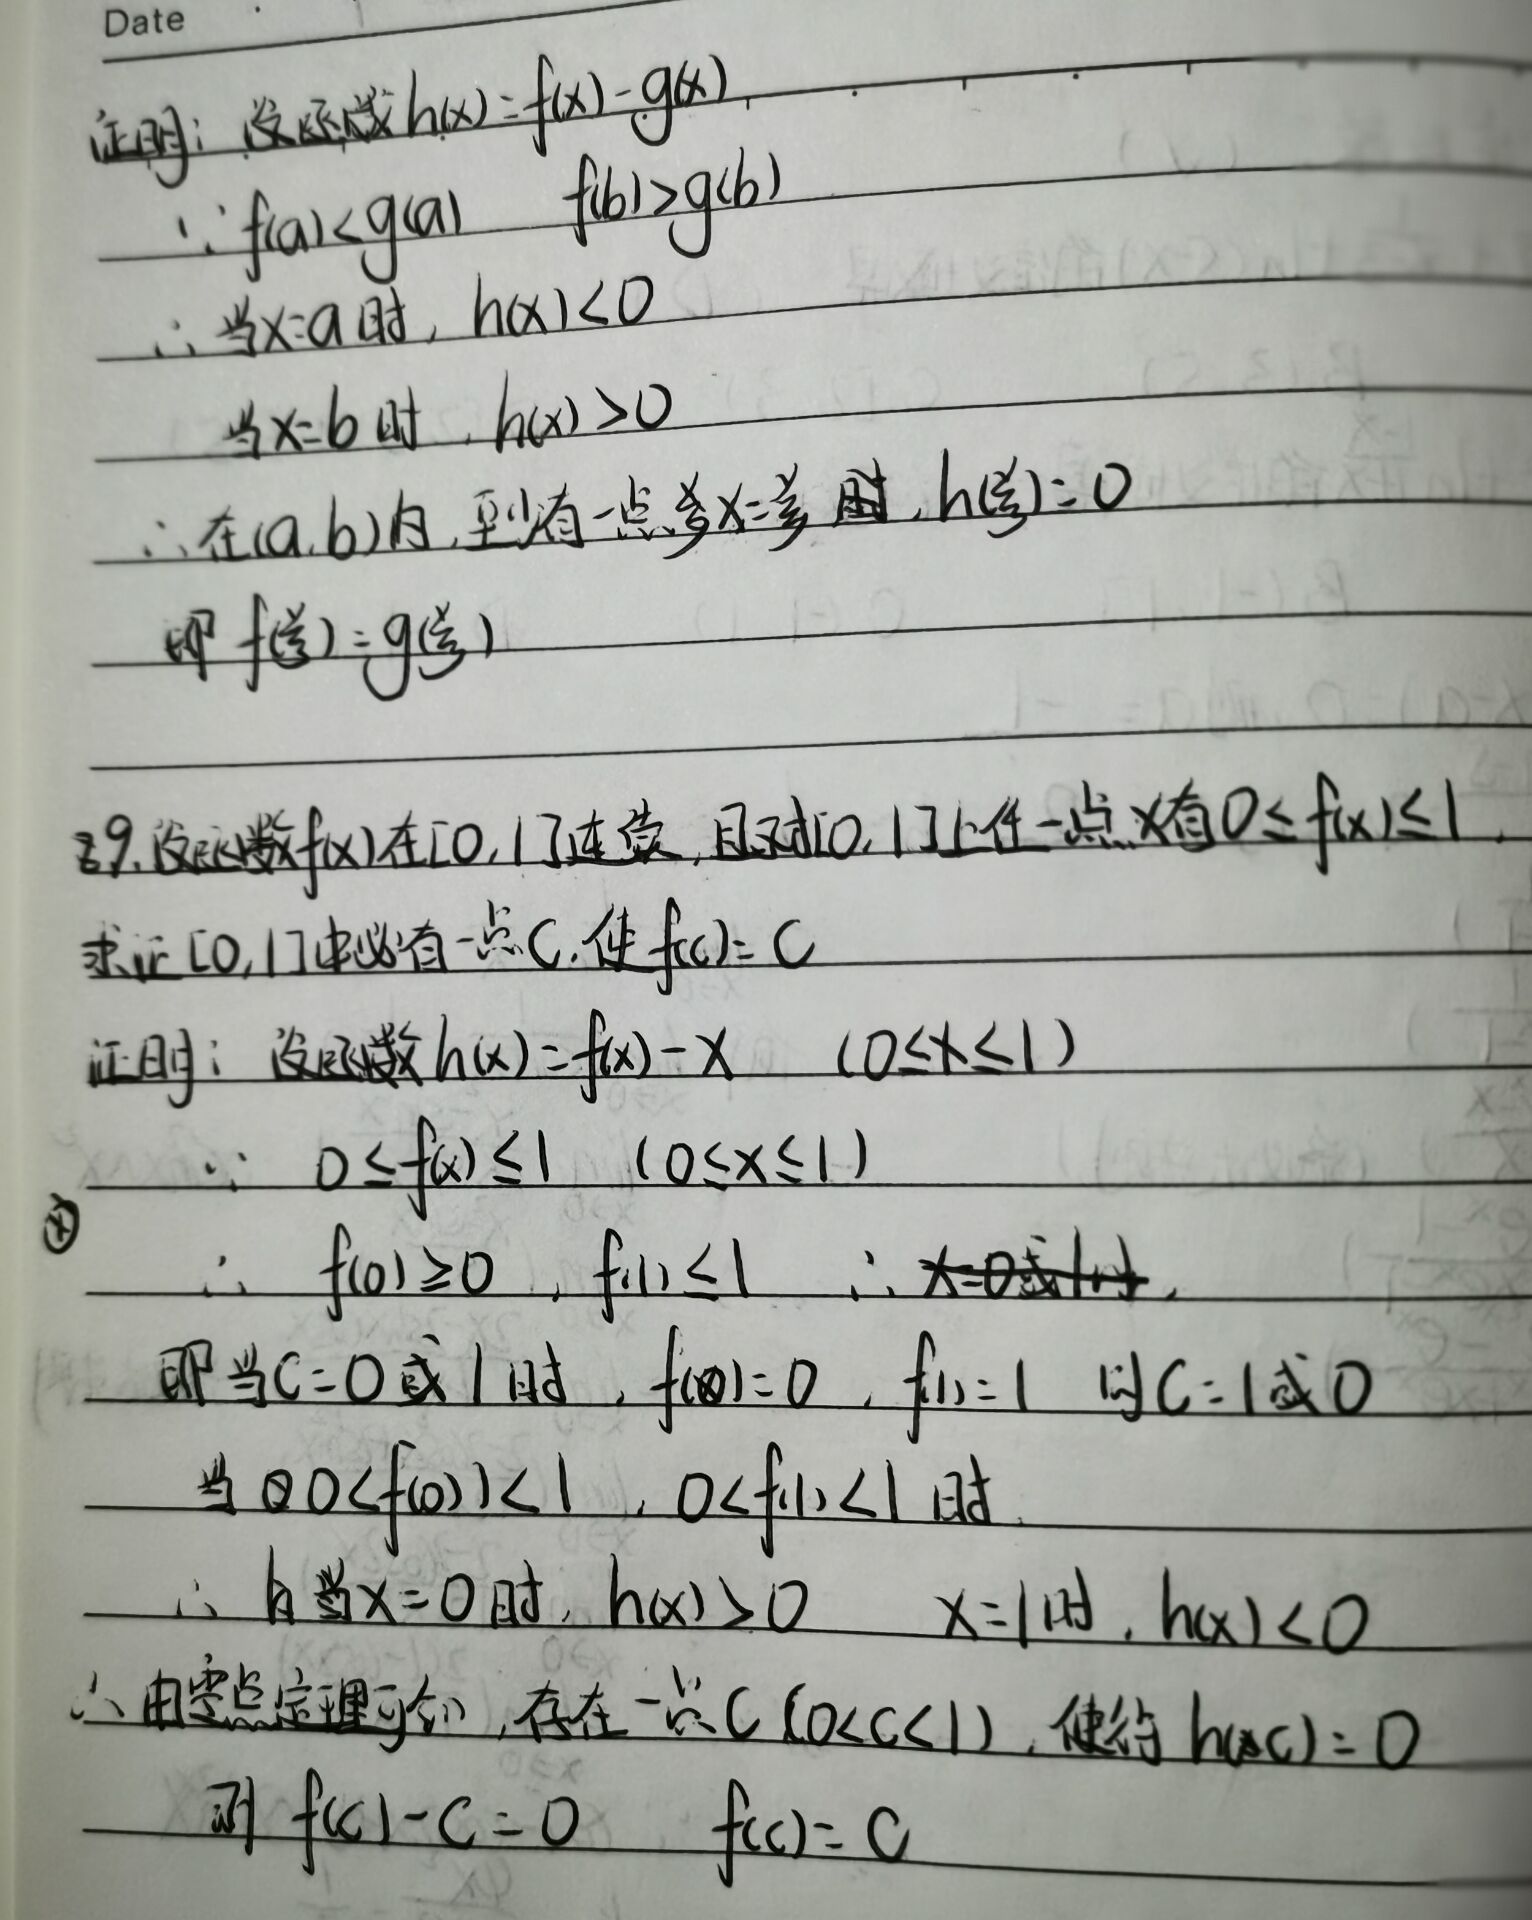 Date
证明：设函数h(x)=f(x)-g(x)
∵ f(a)<g(a)  f(b)>g(b)
∴ 当x=a时，h(x)<0
当x=b时，h(x)>0
∴ 在(a,b)内，至少有一点ξ x=ξ 时，h(ξ)=0
即 f(ξ)=g(ξ)
39.设函数f(x)在[0,1]连续，且对[0,1]上任一点x有0≤f(x)≤1，
求证[0,1]中必有一点C，使f(c)=C
证明：设函数h(x)=f(x)-x  (0≤x≤1)
∵ 0≤f(x)≤1  (0≤x≤1)
∴ f(0)≥0，f(1)≤1  ∴
即当C=0或1时，f(0)=0，f(1)=1  则C=1或0
当 0<f(0)<1，0<f(1)<1时
∴ 当x=0时，h(x)>0  x=1时，h(x)<0
∴ 由零点定理可知，存在一点C(0<c<1)，使得h(c)=0
则 f(c)-c=0  f(c)=C